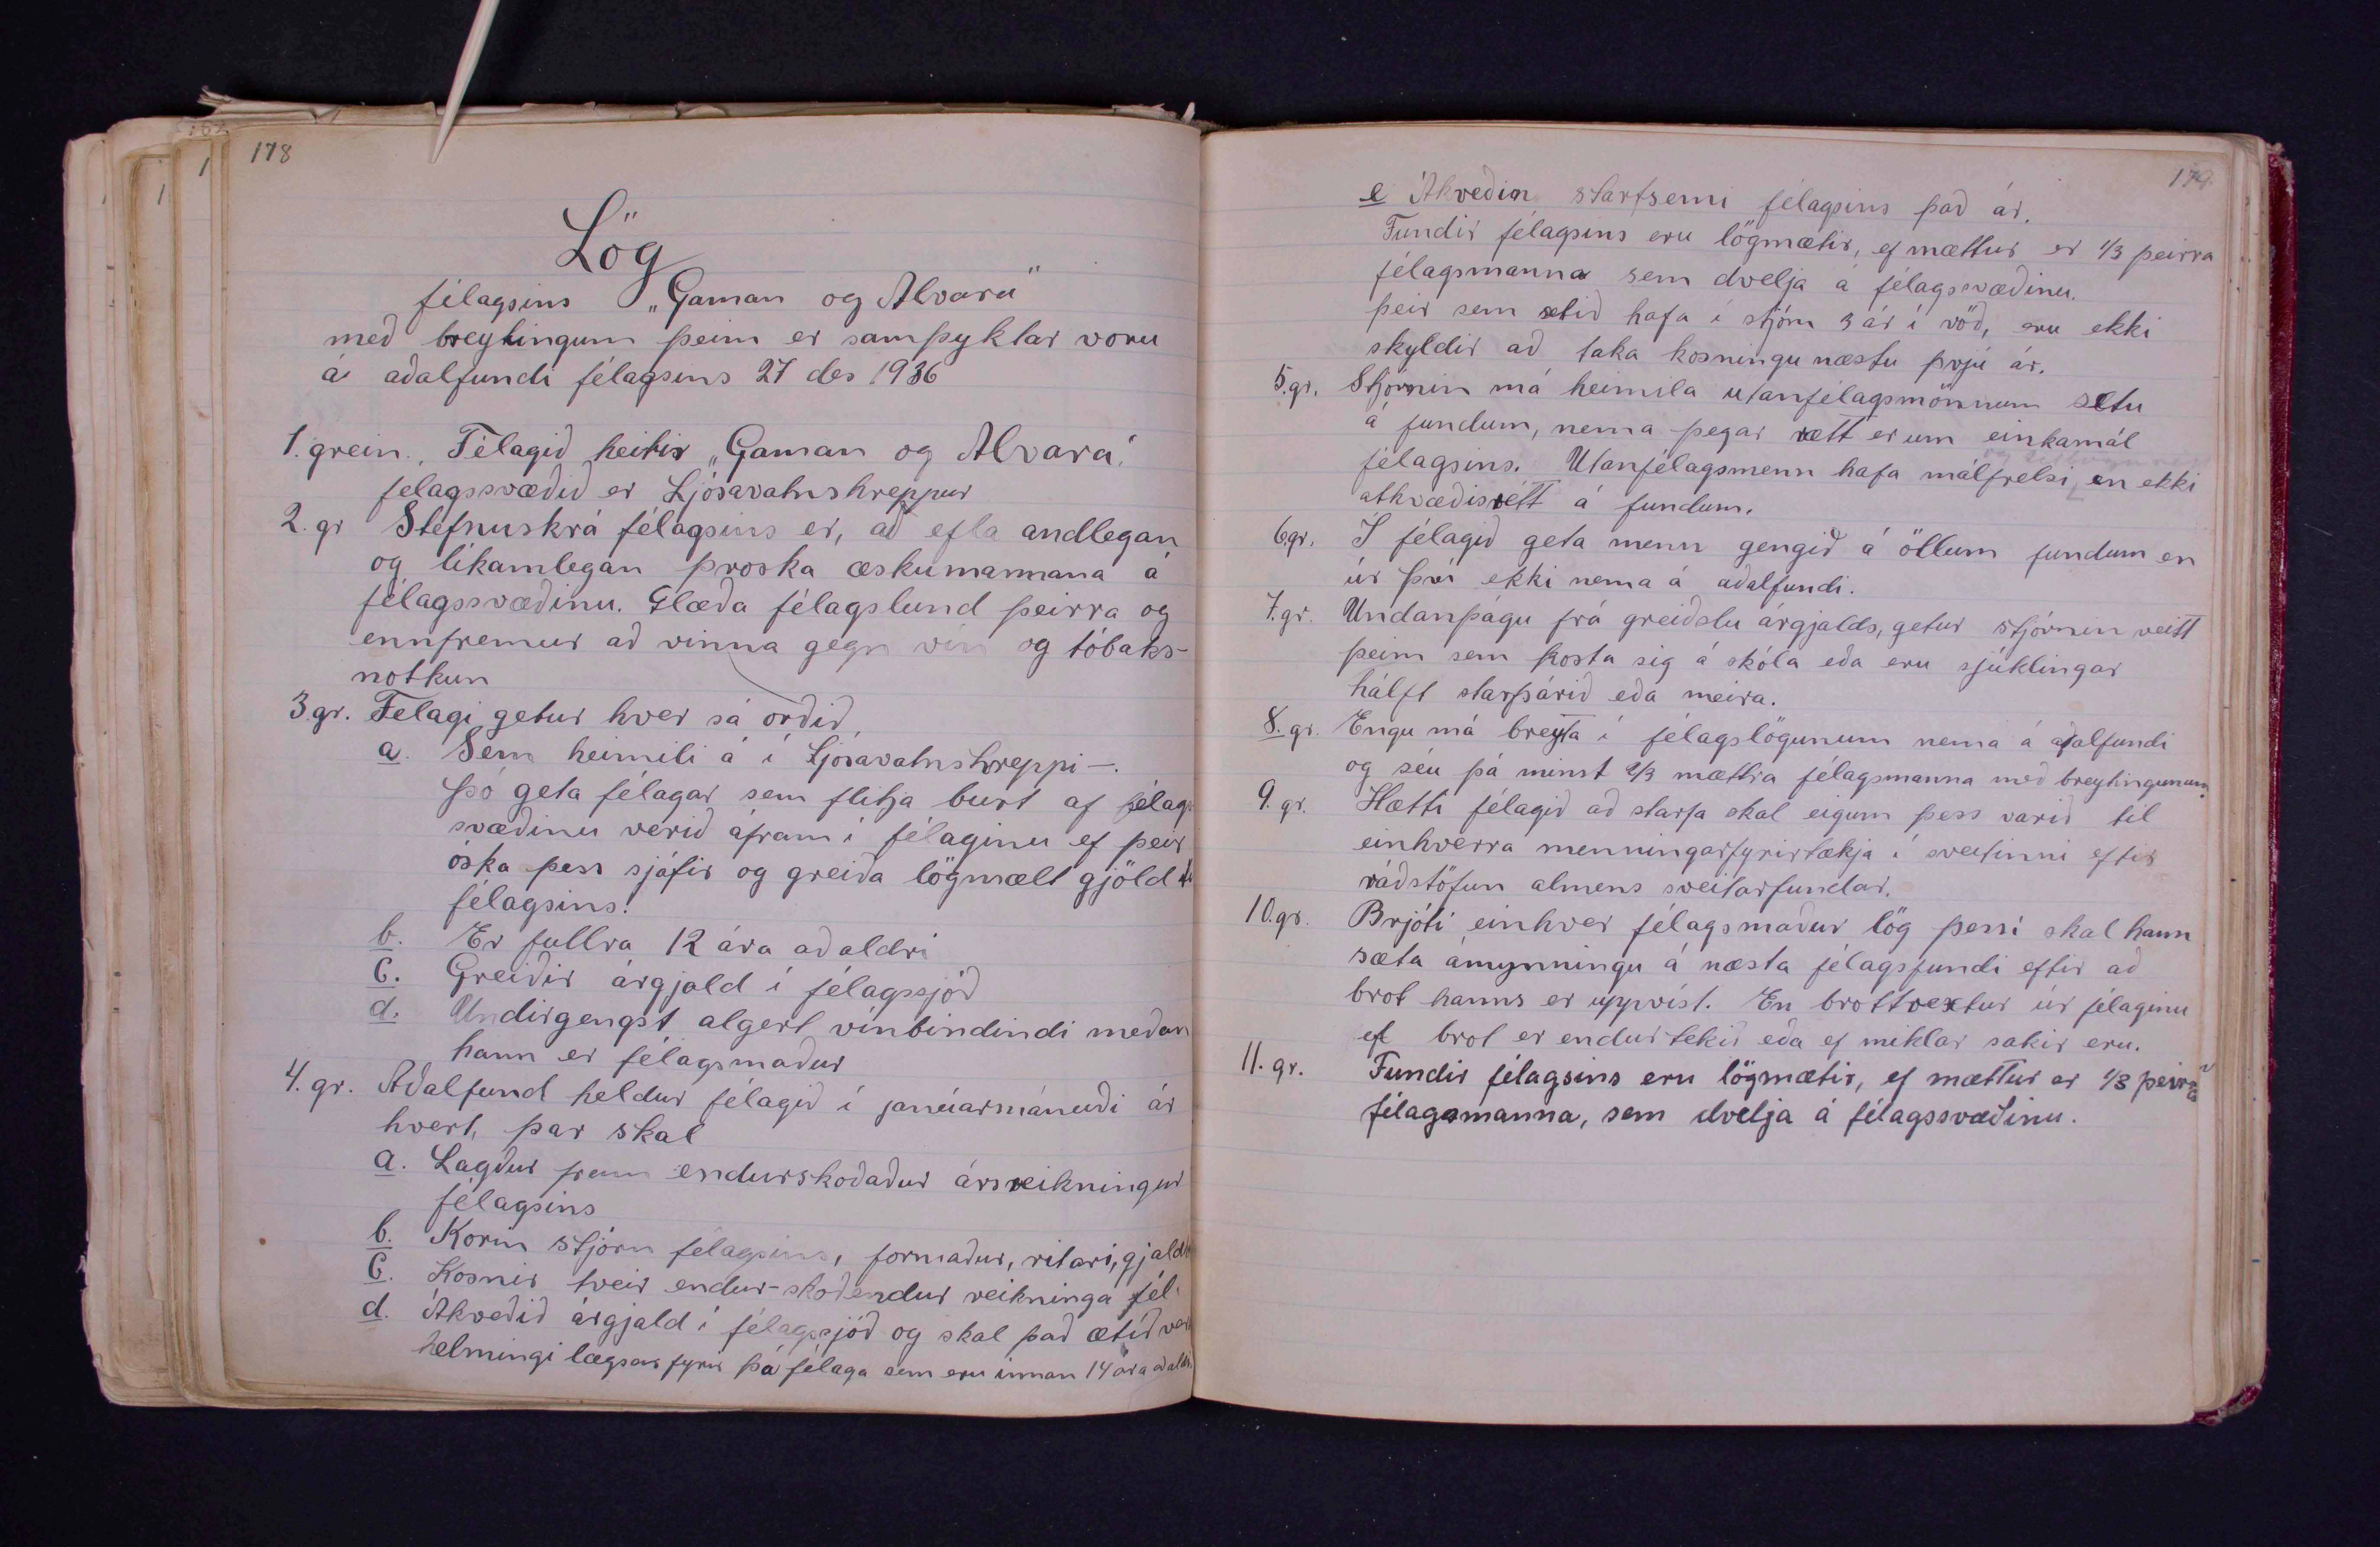 178
Lög
félagsins „Gaman og Alvara"
með breytingum þeim er samþyktar voru
á aðalfundi félagsins 27 des 1936
1. grein. Félagið heitir „Gaman og Alvara".
félagssvæðið er Ljósavatnshreppur
2. gr Stefnuskrá félagsins er, að efla andlegan
og líkamlegan þroska æskumannana á
félagssvæðinu. Glæða félagslund þeirra og
ennfremur að vinna gegn vín og tóbaks-
notkun
3. gr. Félagi getur hver sá orðið,
a. Sem heimili á í Ljósavatnshreppi -.
Þó geta félagar sem flitja burt af félags
svæðinu verið áfram í félaginu ef þeir
óska þess sjáfir og greiða lögmælt gjöld
félagsins.
b. Er fullra 12 ára að aldri
c. Greiðir árgjald í félagssjóð
d. Undirgengst algert vínbindindi meðan
hann er félagsmaður
4. gr. Aðalfund heldur félagið í janúarmánuði ár
hvert, þar skal
a. Lagður fram endurskoðaður ársreikningur
félagsins
b. Kosin stjórn félagsins, formaður, ritari, gjaldk
c. Kosnir tveir endur-skoðendur reikninga fél.
d. Ákveðið árgjald í félagssjóð og skal það ætíð vera
helmingi lægra fyrir þá félaga sem eru innan 14 ára að aldri.
179.
e Ákveðin starfsemi félagsins það ár.
Fundir félagsins eru lögmætir, ef mættur er 1/3 þeirra
félagsmanna sem dvelja á félagssvæðinu.
Þeir sem setið hafa í stjórn 3 ár í röð, eru ekki
skyldir að taka kosningu næstu þrjú ár.
5. gr. Stjórnin má heimila utanfélagsmönnum setu
á fundum, nema þegar rætt er um einkamál
félagsins. Utanfélagsmenn hafa málfrelsi en ekki
athvæðisrétt á fundum.
6. gr. Í félagið geta menn gengið á öllum fundum en
úr því ekki nema á aðalfundi.
7. gr. Undanþágu frá greiðslu árgjalds, getur stjórnin veitt
þeim sem kosta sig á skóla eða eru sjúklingar
hálft starfsárið eða meira.
8. gr. Engu má breyta í félagslögunum nema á aðalfundi
og séu þá minst 2/3 mættra félagsmanna með breytingunum.
9. gr. Hætti félagið að starfa skal eigum þess varið til
einhverra menningarfyrirtækja í sveitinni eftir
ráðstöfun almens sveitarfundar.
10. gr. Brjóti einhver félagsmaður lög þessi skal hann
sæta ámynningu á næsta félagsfundi eftir að
brot hanns er uppvíst. En brottrextur úr félaginu
ef brot er endurtekið eða ef miklar sakir eru.
11. gr. Fundir félagsins eru lögmætir, ef mættur er 1/3 þeirra
félagsmanna, sem dvelja á félagssvæðinu.